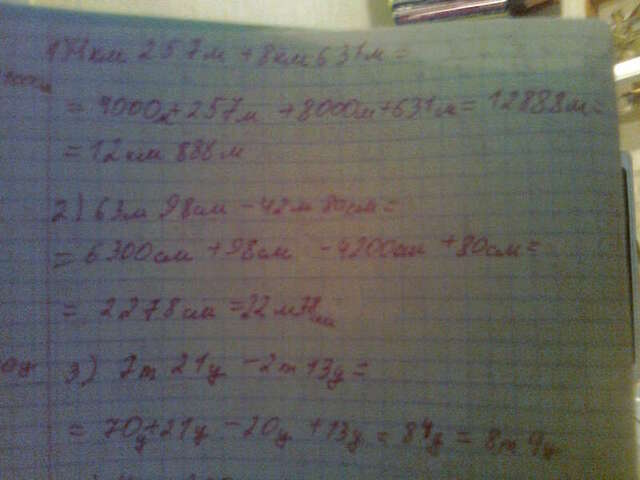 1) 4км 257м + 8км 631м =
= 4000м + 257м + 8000м + 631м = 12888м =
= 12км 888м
2) 63м 98см - 42м 80см =
= 6300см + 98см - 4200см + 80см =
= 2278см = 22м78см
3) 7т 21ц - 2т 13ц =
= 70ц + 21ц - 20ц + 13ц = 84ц = 8т 4ц